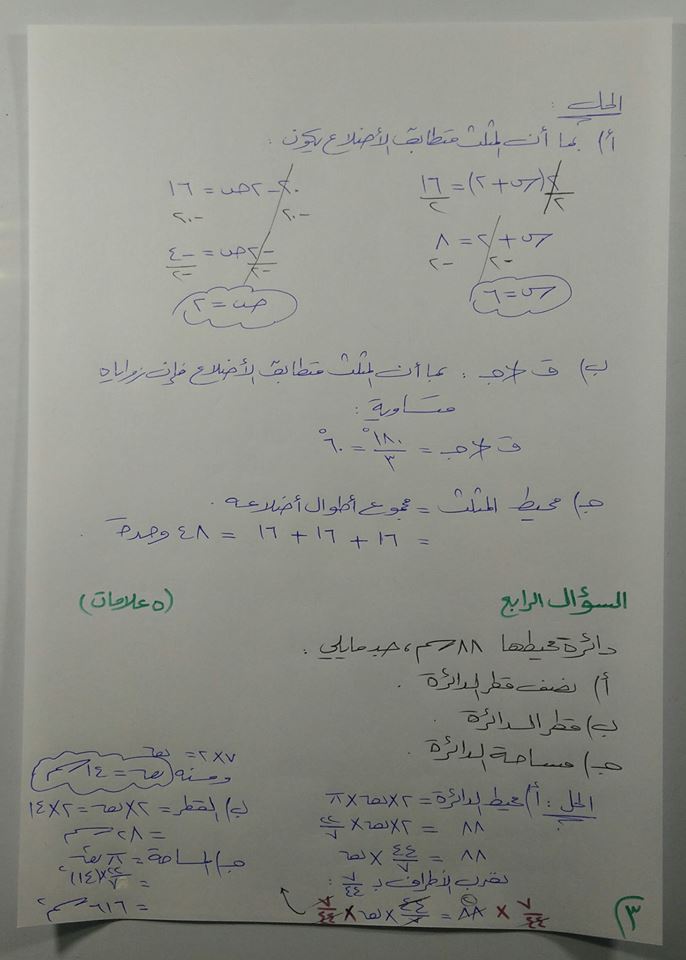 الحل :
أ) بما أن المثلث متطابق الأضلاع يكون :
٢(س+٢) = ١٦
٢ ٢
س+٢ = ٨
-٢ -٢
س=٦
٢٠-٢ص = ١٦
-٢٠ -٢٠
-٢ص = -٤
-٢ -٢
ص = ٢
ب) ق ∢جـ : بما أن المثلث متطابق الأضلاع فإن زواياه
متساوية :
ق ∢جـ = ١٨٠°/٣ = ٦٠°
جـ) محيط المثلث = مجموع أطوال أضلاعه .
= ١٦ + ١٦ + ١٦ = ٤٨ وحدة .
السؤال الرابع (٥ علامات)
دائرة محيطها ٨٨سم، جد مايلي :
أ) نصف قطر الدائرة .
ب) قطر الدائرة .
جـ) مساحة الدائرة .
الحل : أ) محيط الدائرة = ٢×نق×π
٨٨ = ٢×نق×٢٢/٧
٨٨ = ٤٤/٧ × نق
نضرب الأطراف بـ ٧/٤٤ :
٧/٤٤ × ٨٨ = ٤٤/٧ × نق × ٧/٤٤
٢
٢×٧ = نق
ومنه نق = ١٤سم
ب) القطر = ٢×نق = ٢×١٤
= ٢٨سم
جـ) المساحة = π نق٢
= ٢٢/٧×(١٤)٢
= ٦١٦سم٢
٣